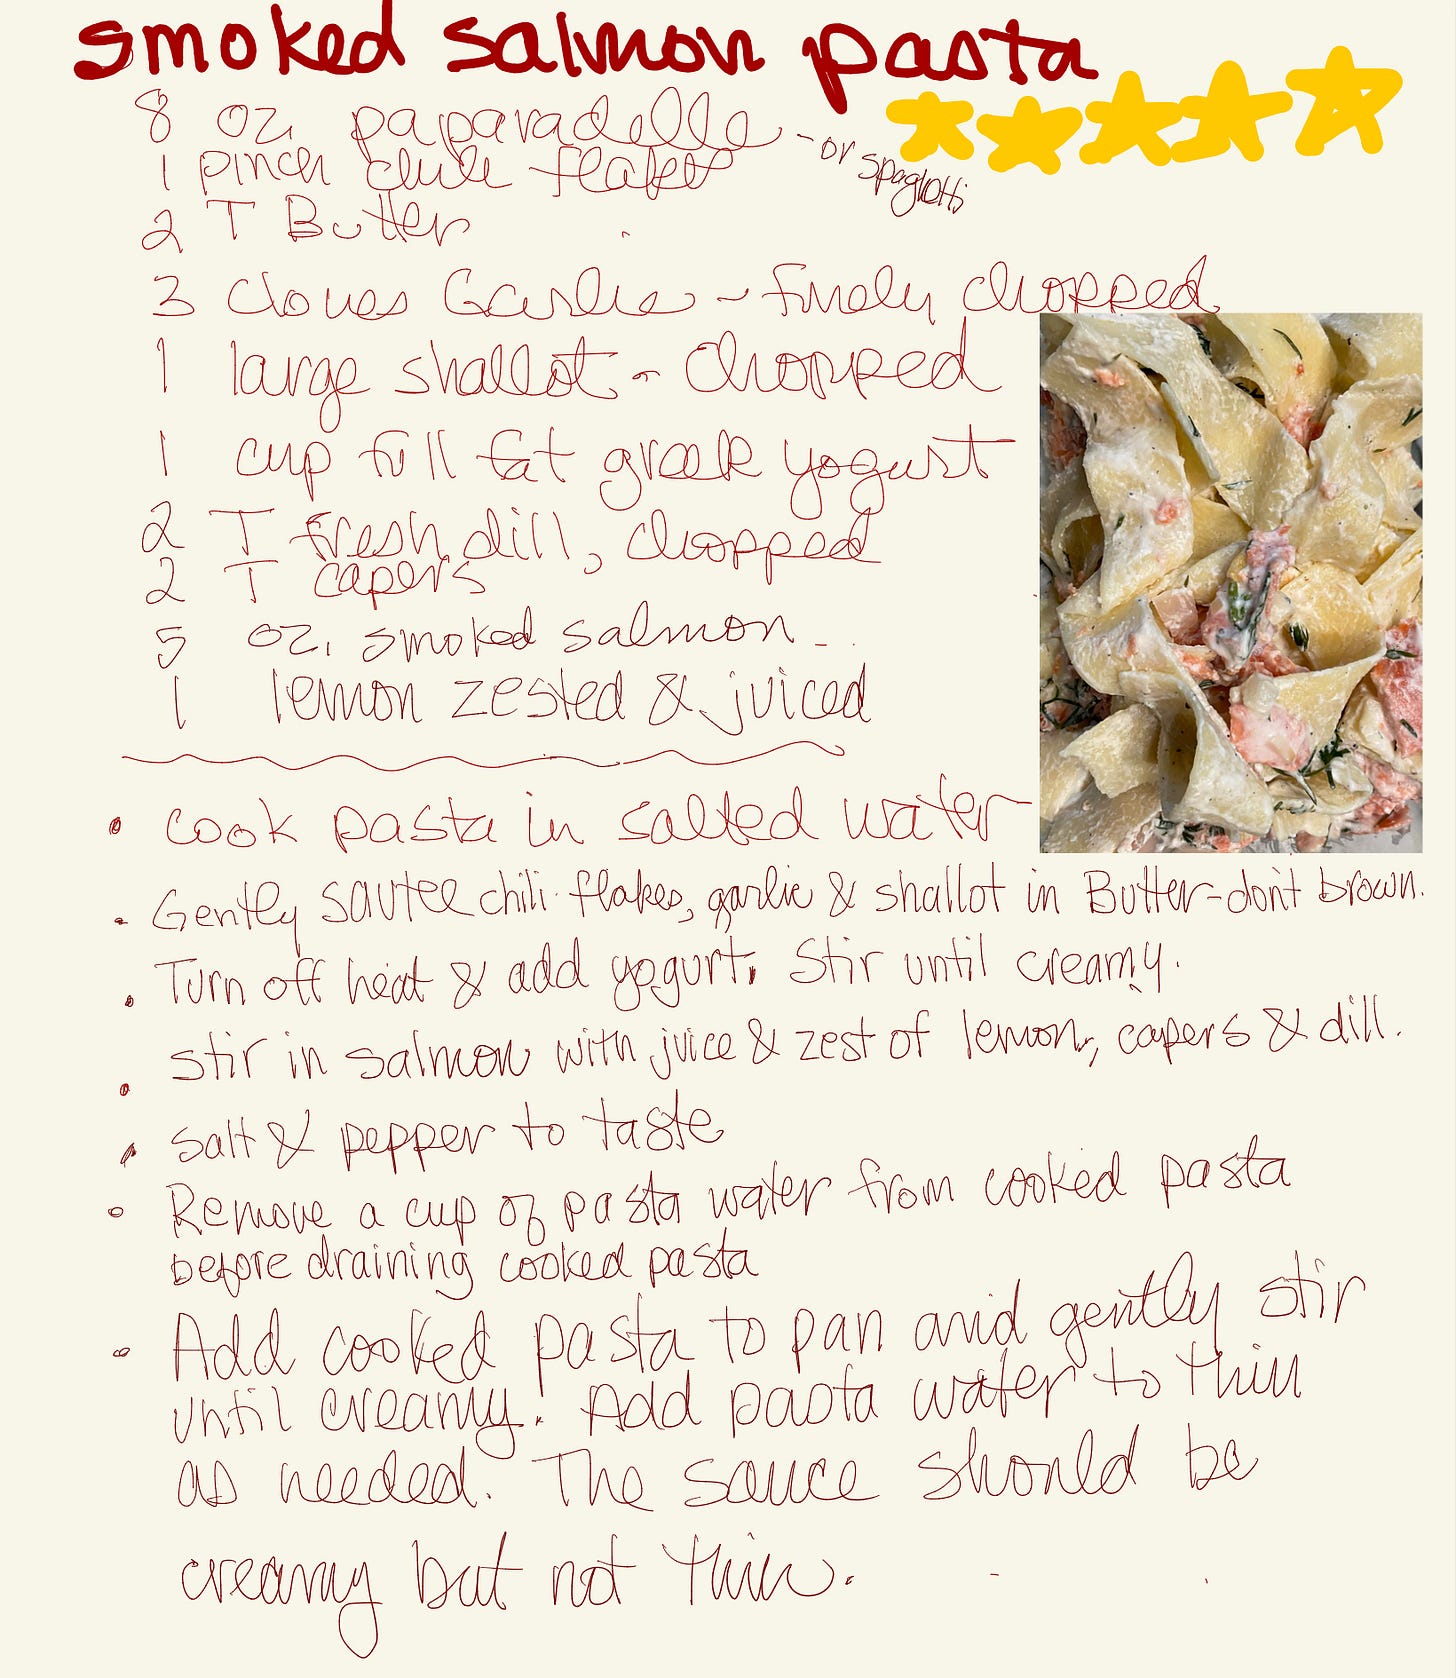 smoked salmon pasta
8 oz. paparadelle - or spaghetti
1 pinch chile flakes
2 T Butter
3 cloves Garlic - finely chopped
1 large shallot - chopped
1 cup full fat greek yogurt
2 T fresh dill, chopped
2 T capers
5 oz. smoked salmon
1 lemon zested & juiced
• cook pasta in salted water
• Gently sautee chili flakes, garlic & shallot in Butter - don't brown.
• Turn off heat & add yogurt. Stir until creamy.
• stir in salmon with juice & zest of lemon, capers & dill.
• salt & pepper to taste
• Remove a cup of pasta water from cooked pasta
before draining cooked pasta
• Add cooked pasta to pan and gently stir
until creamy. Add pasta water to thin
as needed. The sauce should be
creamy but not thin.